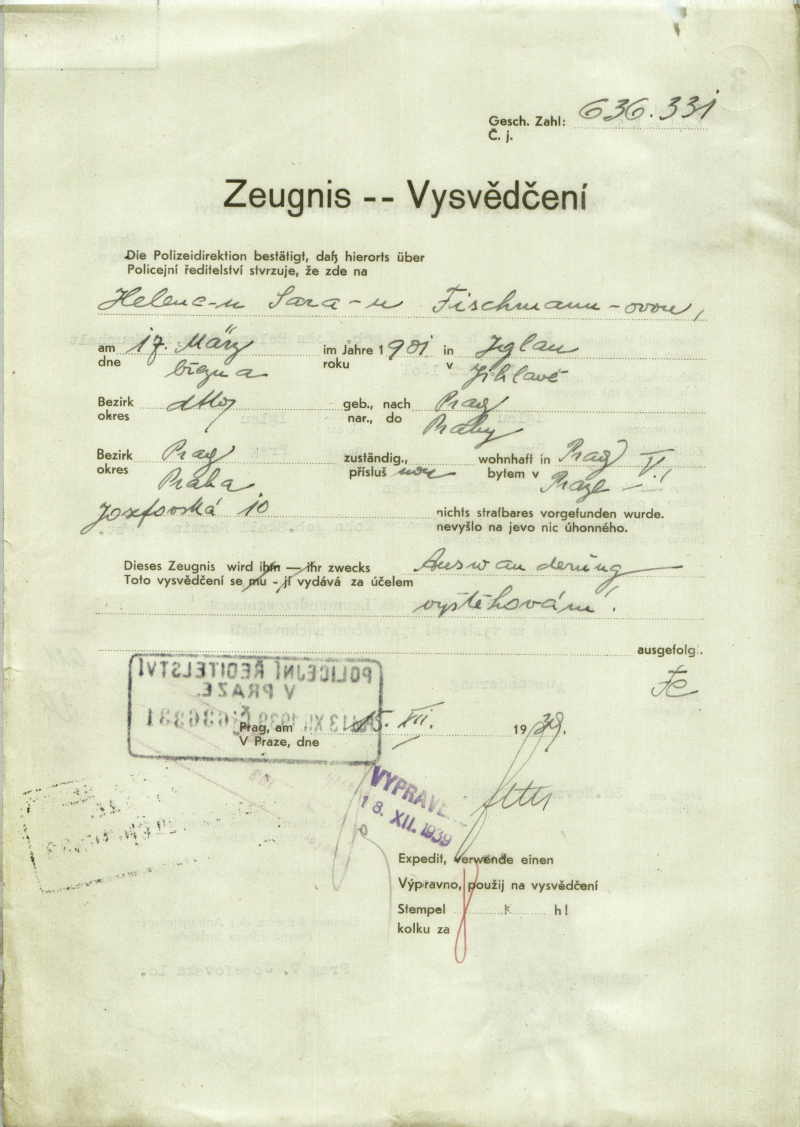 Gesch. Zahl: 636.331
Č. j.
Zeugnis -- Vysvědčení
Die Polizeidirektion bestätigt, daß hierorts über
Policejní ředitelství stvrzuje, že zde na
Helene-n Sara-n Fischmann-ovou,
am 17. März im Jahre 1901 in Iglau
dne března roku v Jihlavě
Bezirk dtto geb., nach Prag
okres nar., do Prahy
Bezirk Prag zuständig., wohnhaft in Prag V.,
okres Praha přísluš nou bytem v Praze
Josefovská 10 nichts strafbares vorgefunden wurde.
nevyšlo na jevo nic úhonného.
Dieses Zeugnis wird ihm — ihr zwecks Auswanderung
Toto vysvědčení se mu - jí vydává za účelem
vystěhování.
ausgefolgt.
POLICEJNÍ ŘEDITELSTVÍ
V PRAZE.
13 XII. 1939 636331
Prag, am 15. XII. 1939.
V Praze, dne
VYPRAVENO
18. XII. 1939
Expedit, verwende einen
Výpravno, použij na vysvědčení
Stempel K h!
kolku za
Prag V. Josefovska 10.